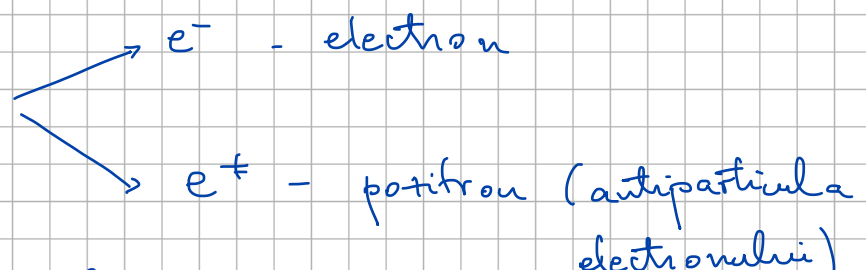 e⁻ - electron
e⁺ - pozitron (antiparticula
electronului)